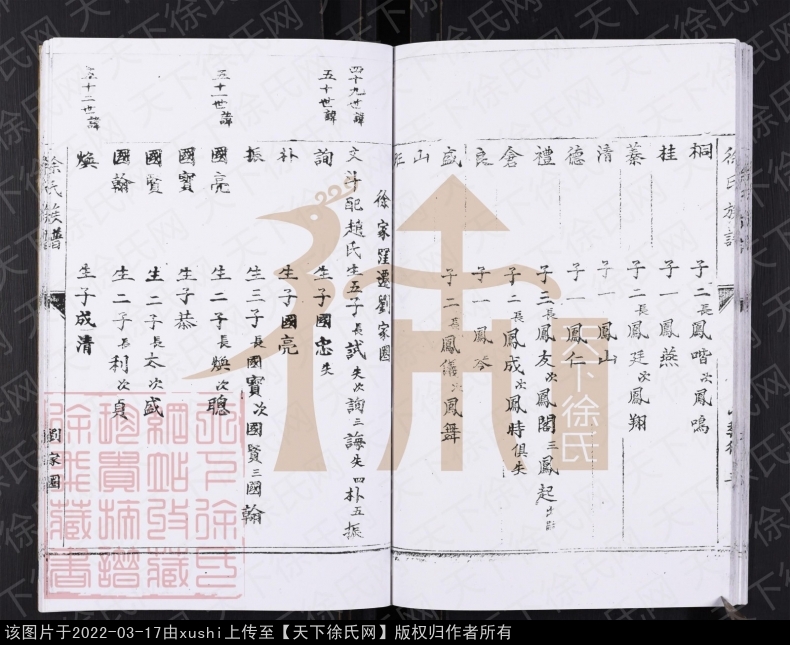 徐氏族譜
桐 子二長鳳喈次鳳鳴
桂 子一鳳燕
蓁 子二長鳳廷次鳳翔
清 子一鳳山
德 子一鳳仁
禮 子三長鳳友次鳳閣三鳳起
倉 子二長鳳成次鳳時俱失
良 子一鳳岺
盛 子二長鳳儀次鳳舞
山
徐家窪遷劉家圈
四十九世諱 文斗配趙氏生五子長試失次詢三誨失四朴五振
五十世諱 詢 生子國忠失
朴 生子國亮
振 生三子長國寶次國賢三國翰
五十一世諱 國亮 生二子長煥次聰
國寶 生子恭
國賢 生二子長太次盛
國翰 生二子長利次貞
五十二世諱 煥 生子成清
徐氏族譜
劉家圈
天下徐氏
天下徐氏网
该图片于2022-03-17由xushi上传至【天下徐氏网】版权归作者所有